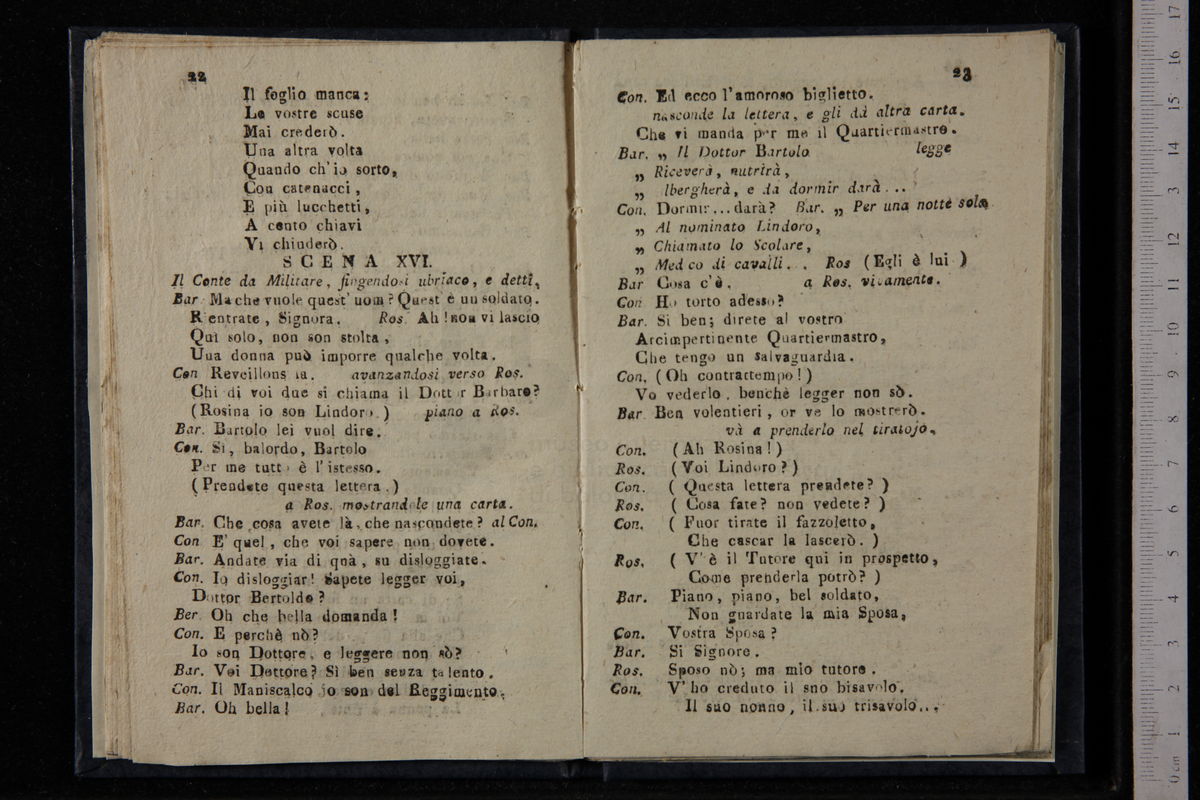 22
Il foglio manca:
Le vostre scuse
Mai crederò.
Una altra volta
Quando ch'io sorto,
Con catenacci,
E più lucchetti,
A cento chiavi
Vi chiuderò.
SCENA XVI.
Il Conte da Militare, fingendosi ubriaco, e detti,
Bar Ma che vuole quest'uom? Quest'è un soldato.
Rientrate, Signora. Ros. Ah! non vi lascio
Qui solo, non son stolta,
Una donna può imporre qualche volta.
Con Reveillons la. avanzandosi verso Ros.
Chi di voi due si chiama il Dottor Barbaro?
(Rosina io son Lindoro.) piano a Ros.
Bar. Bartolo lei vuol dire.
Con. Si, balordo, Bartolo
Per me tutto è l'istesso.
(Prendete questa lettera.)
a Ros. mostrandole una carta.
Bar. Che cosa avete là, che nascondete? al Con.
Con E' quel, che voi sapere non dovete.
Bar. Andate via di quà, su disloggiate.
Con. Io disloggiar! Sapete legger voi,
Dottor Bertoldo?
Ber Oh che bella domanda!
Con. E perchè nò?
Io son Dottore, e leggere non sò?
Bar. Voi Dottore? Si ben senza talento.
Con. Il Maniscalco io son del Reggimento.
Bar. Oh bella!
23
Con. Ed ecco l'amoroso biglietto.
nasconde la lettera, e gli dà altra carta.
Che vi manda per me il Quartiermastro.
Bar. „ Il Dottor Bartolo legge
„ Riceverà, nutrirà,
„ lbergherà, e da dormir darà...
Con. Dormir... darà? Bar. „ Per una notte sola
„ Al nominato Lindoro,
„ Chiamato lo Scolare,
„ Med co di cavalli. . Ros (Egli è lui )
Bar Cosa c'è. a Ros. vivamente.
Con Ho torto adesso?
Bar. Si ben; direte al vostro
Arcimpertinente Quartiermastro,
Che tengo un salvaguardia.
Con. (Oh contrattempo!)
Vo vederlo, benchè legger non sò.
Bar. Ben volentieri, or ve lo mostrerò.
và a prenderlo nel tiratojo,
Con. (Ah Rosina!)
Ros. (Voi Lindoro?)
Con. ( Questa lettera prendete? )
Ros. ( Cosa fate? non vedete? )
Con. ( Fuor tirate il fazzoletto,
Che cascar la lascerò. )
Ros. ( V'è il Tutore qui in prospetto,
Come prenderla potrò? )
Bar. Piano, piano, bel soldato,
Non guardate la mia Sposa,
Con. Vostra Sposa?
Bar. Si Signore.
Ros. Sposo nò; ma mio tutore.
Con. V'ho creduto il suo bisavolo.
Il suo nonno, il suo trisavolo...